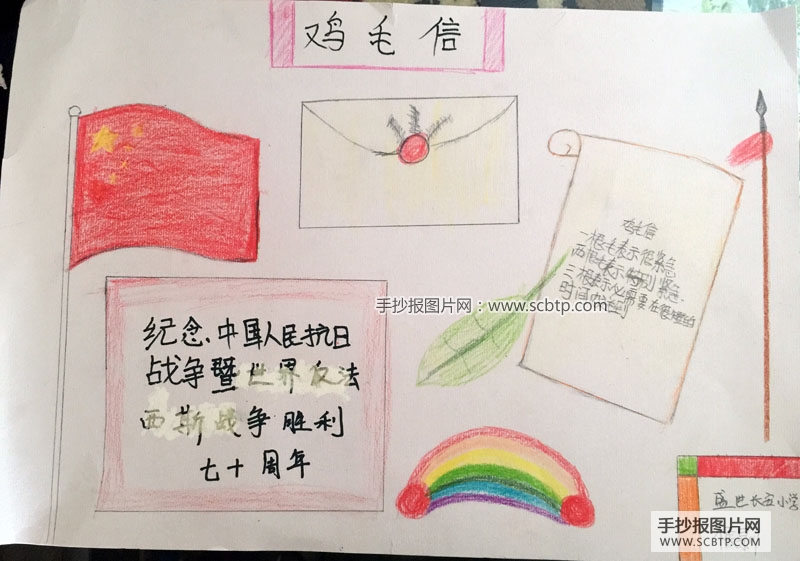 鸡毛信
鸡毛信
一根毛表示很紧急
两根毛表示特别紧急.
三根表示必需要在很短的
时间办到
手抄报图片网：www.scbtp.com
纪念.中国人民抗日
战争暨世界反法
西斯战争胜利
七十周年
盛世长安小学
手抄报图片网
WWW.SCBTP.COM